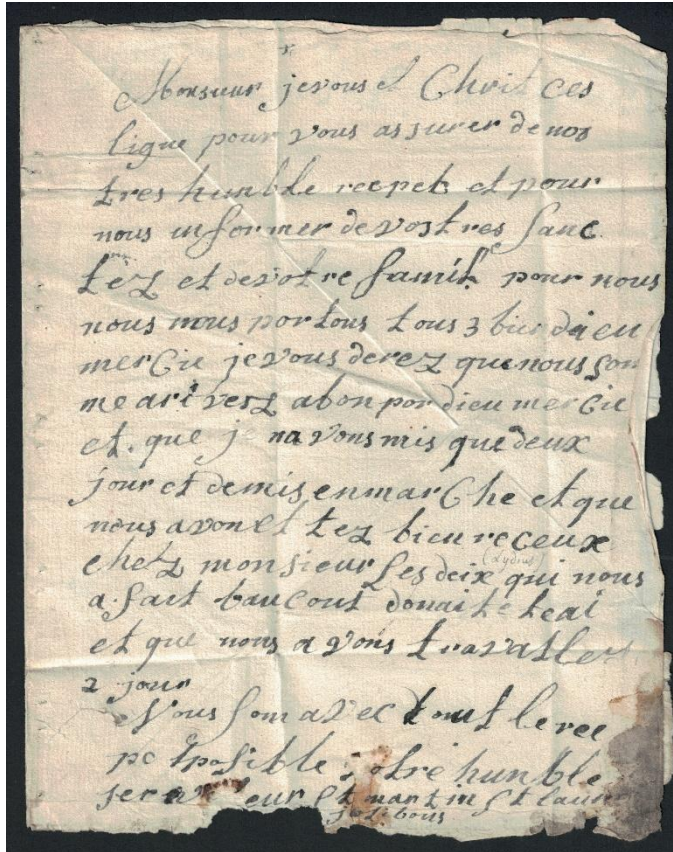 Monsieur je vous et Chrit ces
ligue pour vous assurer de nos
tres humble recpet et pour
nous informer de vostres sanc
tez et de votre famill pour nous
nous nous portous tous 3 bien dieu
merCie je vous derez que nous som
me arivesz a bon por dieu merCie
et que je navons mis que deux
jour et demis en marChe et que
nous avon et tez bien receux
chetz monsieur Lesdeix qui nous
(Lydius)
a fact baucout donaitetai
et que nous avons travallez
2 jour
Nous som avec tout le rec
pc tposible votre humble
serviteur St martin St laun